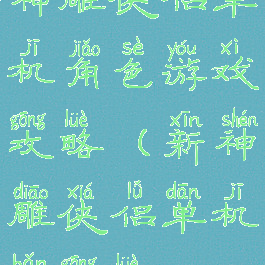 神雕侠侣单
jī jiǎo sè yóu xì
机角色游戏
gōng lüè xīn shén
攻略（新神
diāo xiá lǚ dān jī
雕侠侣单机
gōng lüè